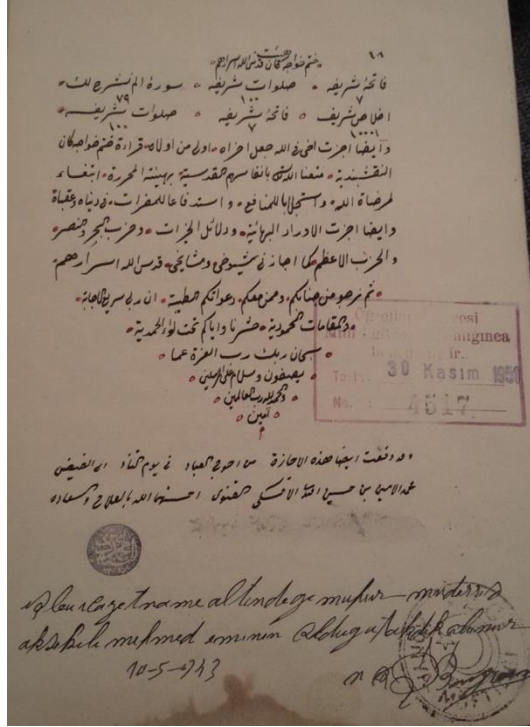 ختم خواجه كان قدس الله اسرارهم
فاتحهٔ شريفه صلوات شريفه سورة الم نشرح لك
٧ ١٠٠ ٧٩
اخلاص شريف فاتحهٔ شريفه صلوات شريفه
١٠٠١ ٧ ١٠٠
وايضا اجزت اخى فى الله جعل اخراه اولى من اولاه قراءة ختم خواجه كان
النقشبندية متعنا الله بانفاسهم القدسية بهيئته المحررة ابتغاء
لمرضاة الله واستجلابا للمنافع واستدفاعا للمضرات فى دنياه وعقباه
وايضا اجزت الاوراد البهائية ودلائل الخيرات وحزب البحر والنصر
والحزب الاعظم كما اجازنى شيوخى ومشائخى قدس الله اسرارهم
ثم نرجو من جنابكم وممن معكم دعواتكم الطيبة ان ربى سريع الاجابة
والمقامات المحمودية حشرنا واياكم تحت لواء الحمدية
سبحان ربك رب العزة عما
يصفون وسلام على المرسلين
والحمد لله رب العالمين
آمين
م
Öğretim Dairesi
30 Kasım 1950
No. : 4517
وقد وقعت ايضا هذه الاجازة من احوج العباد فى يوم التناد الى الفيض
محمد الامين بن حسين افندى الاقسكى القنوى احسنهما الله بالفلاح والسعاده
işbu icazetname altındaki mühür müderris
aksekili mehmed eminin olduğu tasdik olunur
10-5-943